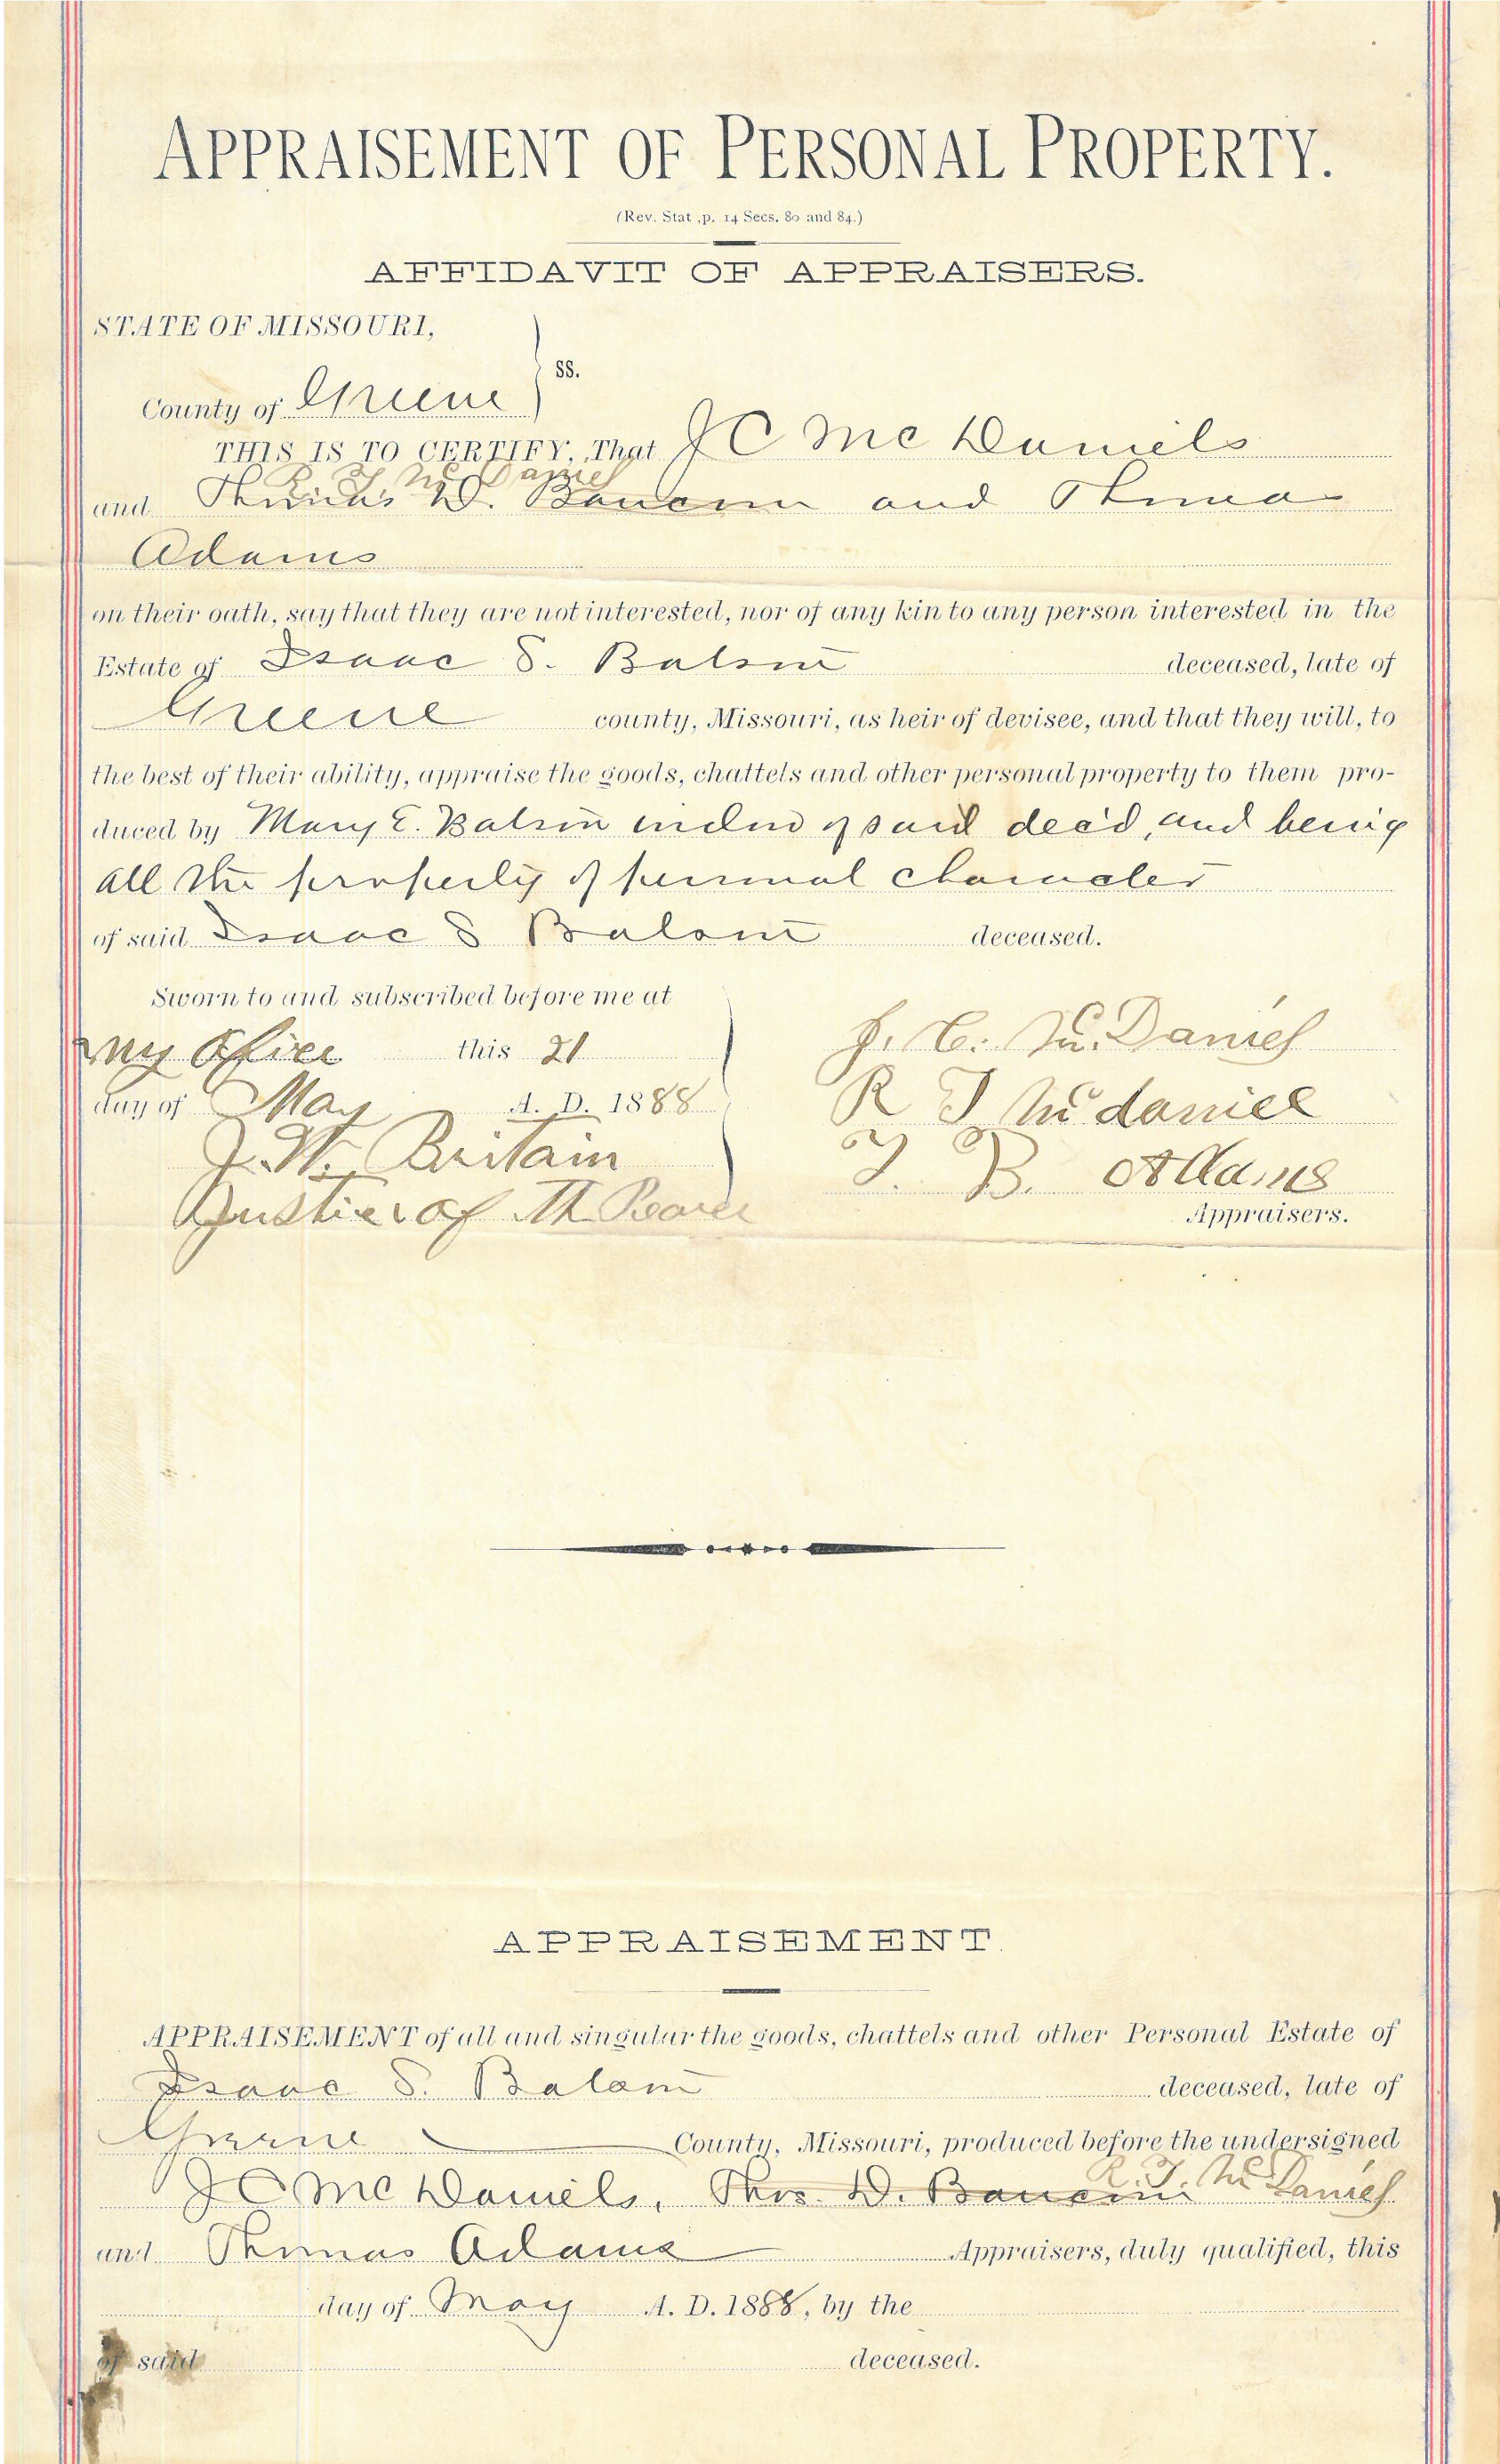 APPRAISEMENT OF PERSONAL PROPERTY.
(Rev. Stat ,p. 14 Secs. 80 and 84.)
AFFIDAVIT OF APPRAISERS.
STATE OF MISSOURI,
ss.
County of Greene
THIS IS TO CERTIFY, That J C Mc Daniels
R. T. Mc Daniel
and Thomas D. and Thomas
Adams
on their oath, say that they are not interested, nor of any kin to any person interested in the
Estate of Isaac S. deceased, late of
Greene county, Missouri, as heir of devisee, and that they will, to
the best of their ability, appraise the goods, chattels and other personal property to them pro-
duced by Mary E. widow of said dec'd, and being
all the property of personal character
of said Isaac S deceased.
Sworn to and subscribed before me at
my Ofice this 21
day of May A. D. 1888
J. W. Britain
Justice of The Peace
J. C. McDaniel
R T Mcdaniel
T. B. Adams
Appraisers.
APPRAISEMENT.
APPRAISEMENT of all and singular the goods, chattels and other Personal Estate of
Isaac S. deceased, late of
Greene County, Missouri, produced before the undersigned
J C Mc Daniels, Thos. D. R. T. McDaniel
and Thomas Adams Appraisers, duly qualified, this
day of May A. D. 1888, by the
of said deceased.